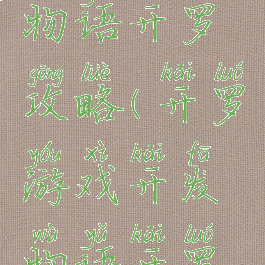 物语开罗
gōng lüè kāi luó
攻略(开罗
yóu xì kāi fā
游戏开发
wù yǔ kāi luó
物语开罗